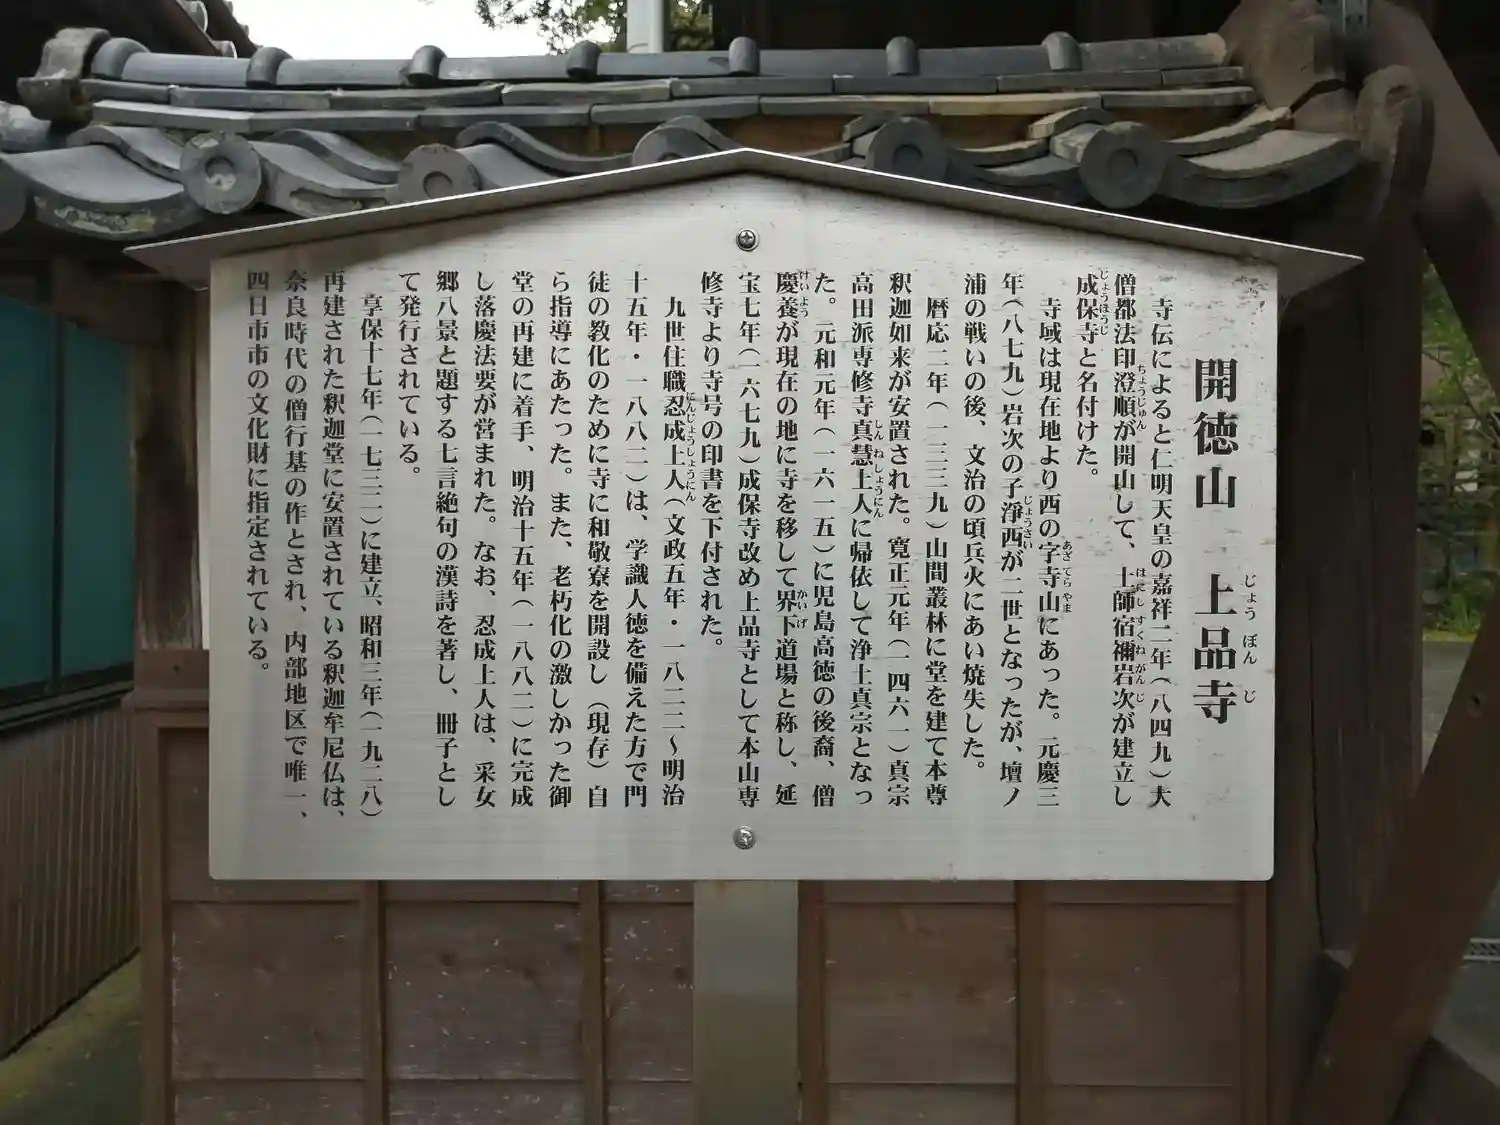 開徳山 上品寺
じょう ぼん じ
寺伝によると仁明天皇の嘉祥二年(八四九)大
僧都法印澄順が開山して、土師宿禰岩次が建立し
ちょうじゅん はにし すくねがんじ
成保寺と名付けた。
じょうほうじ
寺域は現在地より西の字寺山にあった。元慶三
あざてらやま
年(八七九)岩次の子淨西が二世となったが、壇ノ
じょうさい
浦の戦いの後、文治の頃兵火にあい焼失した。
暦応二年(一三三九)山間叢林に堂を建て本尊
釈迦如来が安置された。寛正元年(一四六一)真宗
高田派専修寺真慧上人に帰依して浄土真宗となっ
しんねしょうにん
た。元和元年(一六一五)に児島高徳の後裔、僧
慶養が現在の地に寺を移して界下道場と称し、延
けいよう かいげ
宝七年(一六七九)成保寺改め上品寺として本山専
修寺より寺号の印書を下付された。
九世住職忍成上人(文政五年・一八二二〜明治
にんじょうしょうにん
十五年・一八八二)は、学識人徳を備えた方で門
徒の教化のために寺に和敬寮を開設し(現存)自
ら指導にあたった。また、老朽化の激しかった御
堂の再建に着手、明治十五年(一八八二)に完成
し落慶法要が営まれた。なお、忍成上人は、采女
郷八景と題する七言絶句の漢詩を著し、冊子とし
て発行されている。
享保十七年(一七三二)に建立、昭和三年(一九二八)
再建された釈迦堂に安置されている釈迦牟尼仏は、
奈良時代の僧行基の作とされ、内部地区で唯一、
四日市市の文化財に指定されている。